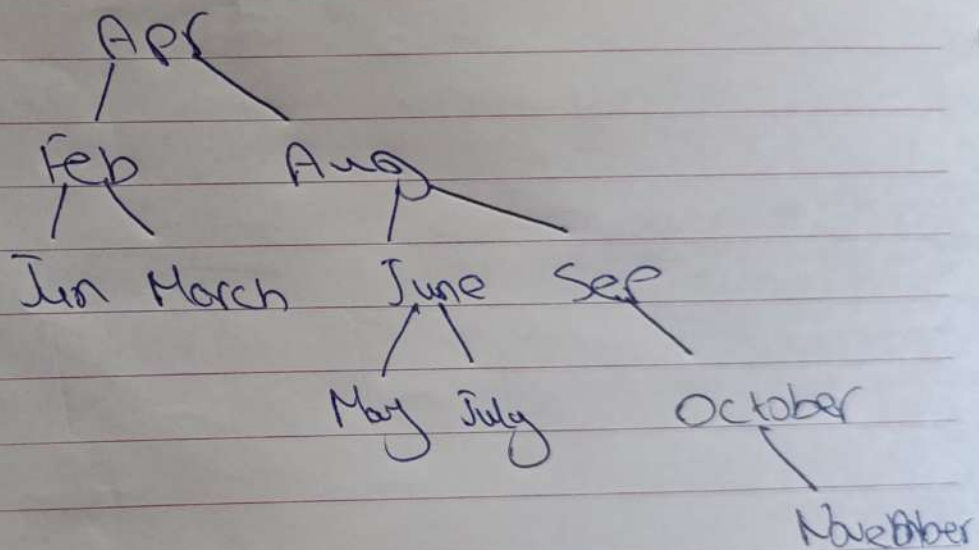 Apr
Feb Aug
Jan March June Sep
May July October
November